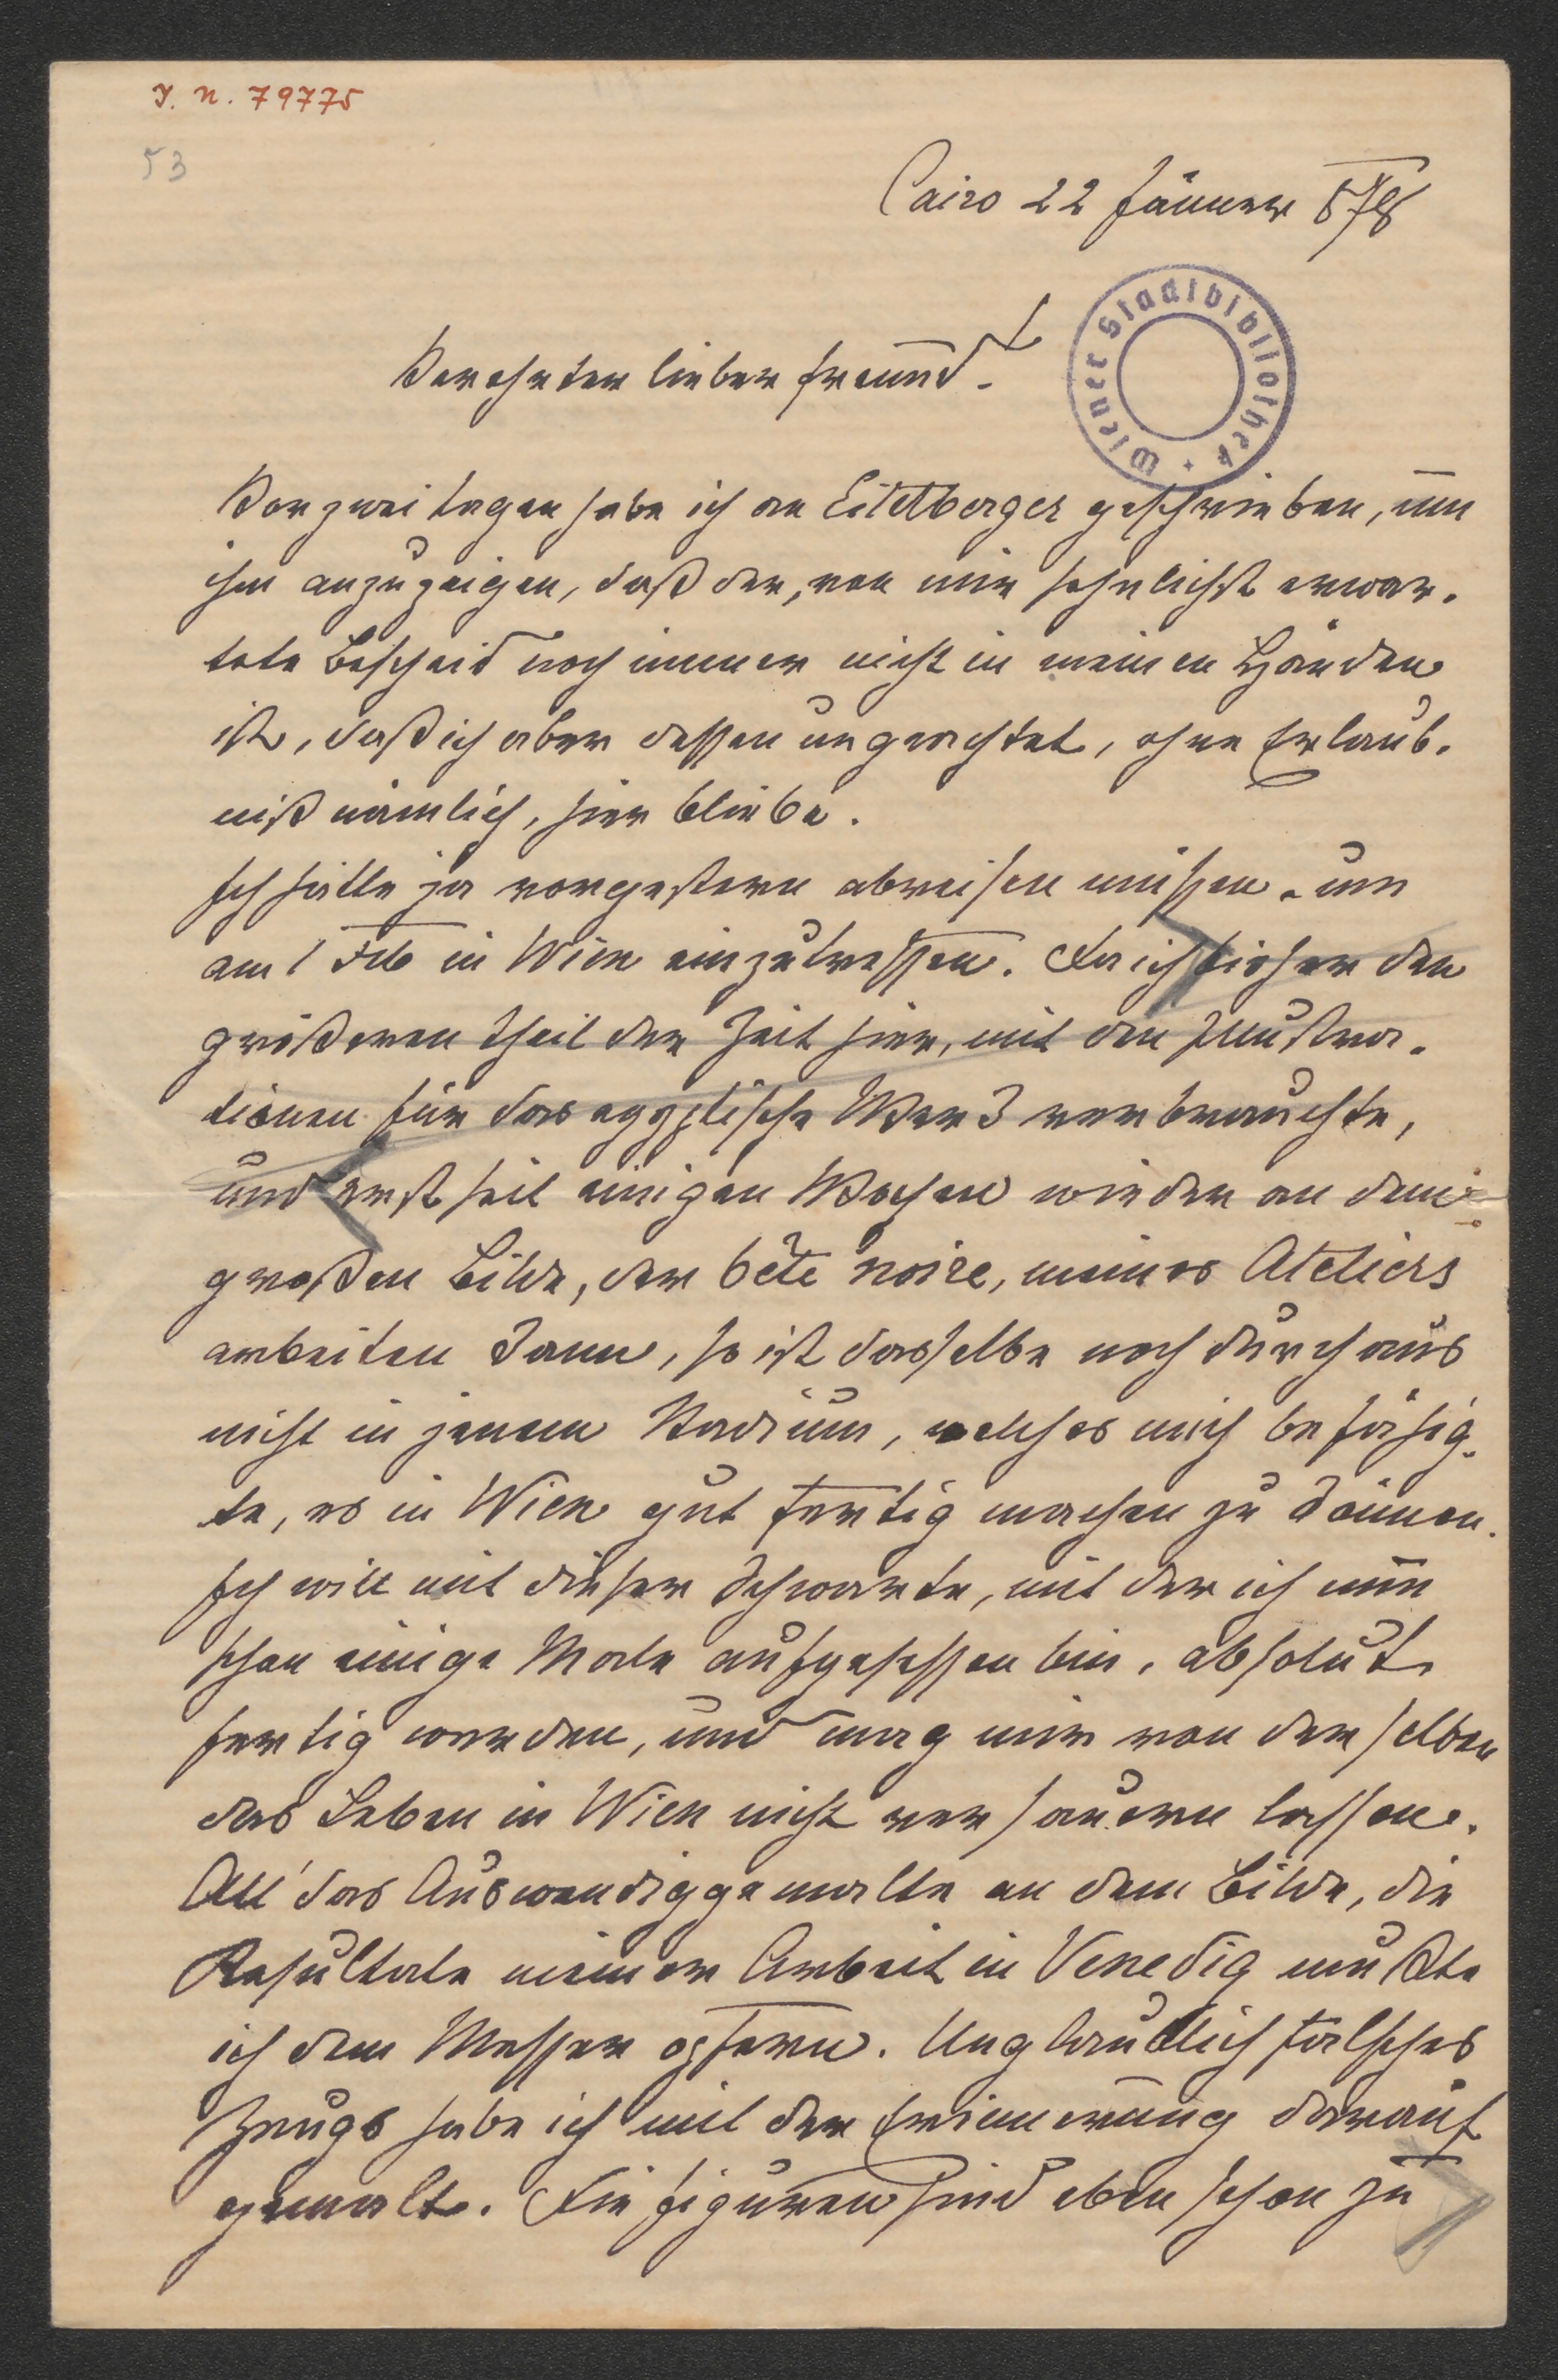 J. N. 79775
53
Cairo 22 Jänner 878
Wiener Stadtbibliothek
Verehrter lieber Freund.
Vor zwei Tagen habe ich an Eitelberger geschrieben, um
ihm anzuzeigen, daß der, von mir sehnlichst erwar-
tete Bescheid noch immer nicht in meinen Händen
ist, daß ich aber dessen ungeachtet, ohne Erlaub-
niß nämlich, hier bleibe.
Ich hätte ja vorgestern abreisen müssen, um
am 1 Feb in Wien einzutreffen. Da ich bisher den
größeren Theil der Zeit hier, mit den Illustra-
tionen für das egyptische Werk verbrauchte,
und erst seit einigen Wochen wieder an dem
großen Bilde, der bête noire, meines Ateliers
arbeiten kann, so ist dasselbe noch durchaus
nicht in jenem Stadium, welches mich befähig-
te, es in Wien gut fertig machen zu können.
Ich will mit dieser Schwarte, mit der ich nun
schon einige Male aufgesessen bin, absolut
fertig werden, und mag mir von derselben
das Leben in Wien nicht versauern lassen.
All' das Auswendiggemalte an dem Bilde, die
Resultate meiner Arbeit in Venedig mußte
ich dem Messer opfern. Unglaublich falsches
Zeugs habe ich mit der Erinnerung darauf
gemalt. Die Figuren sind eben schon zu